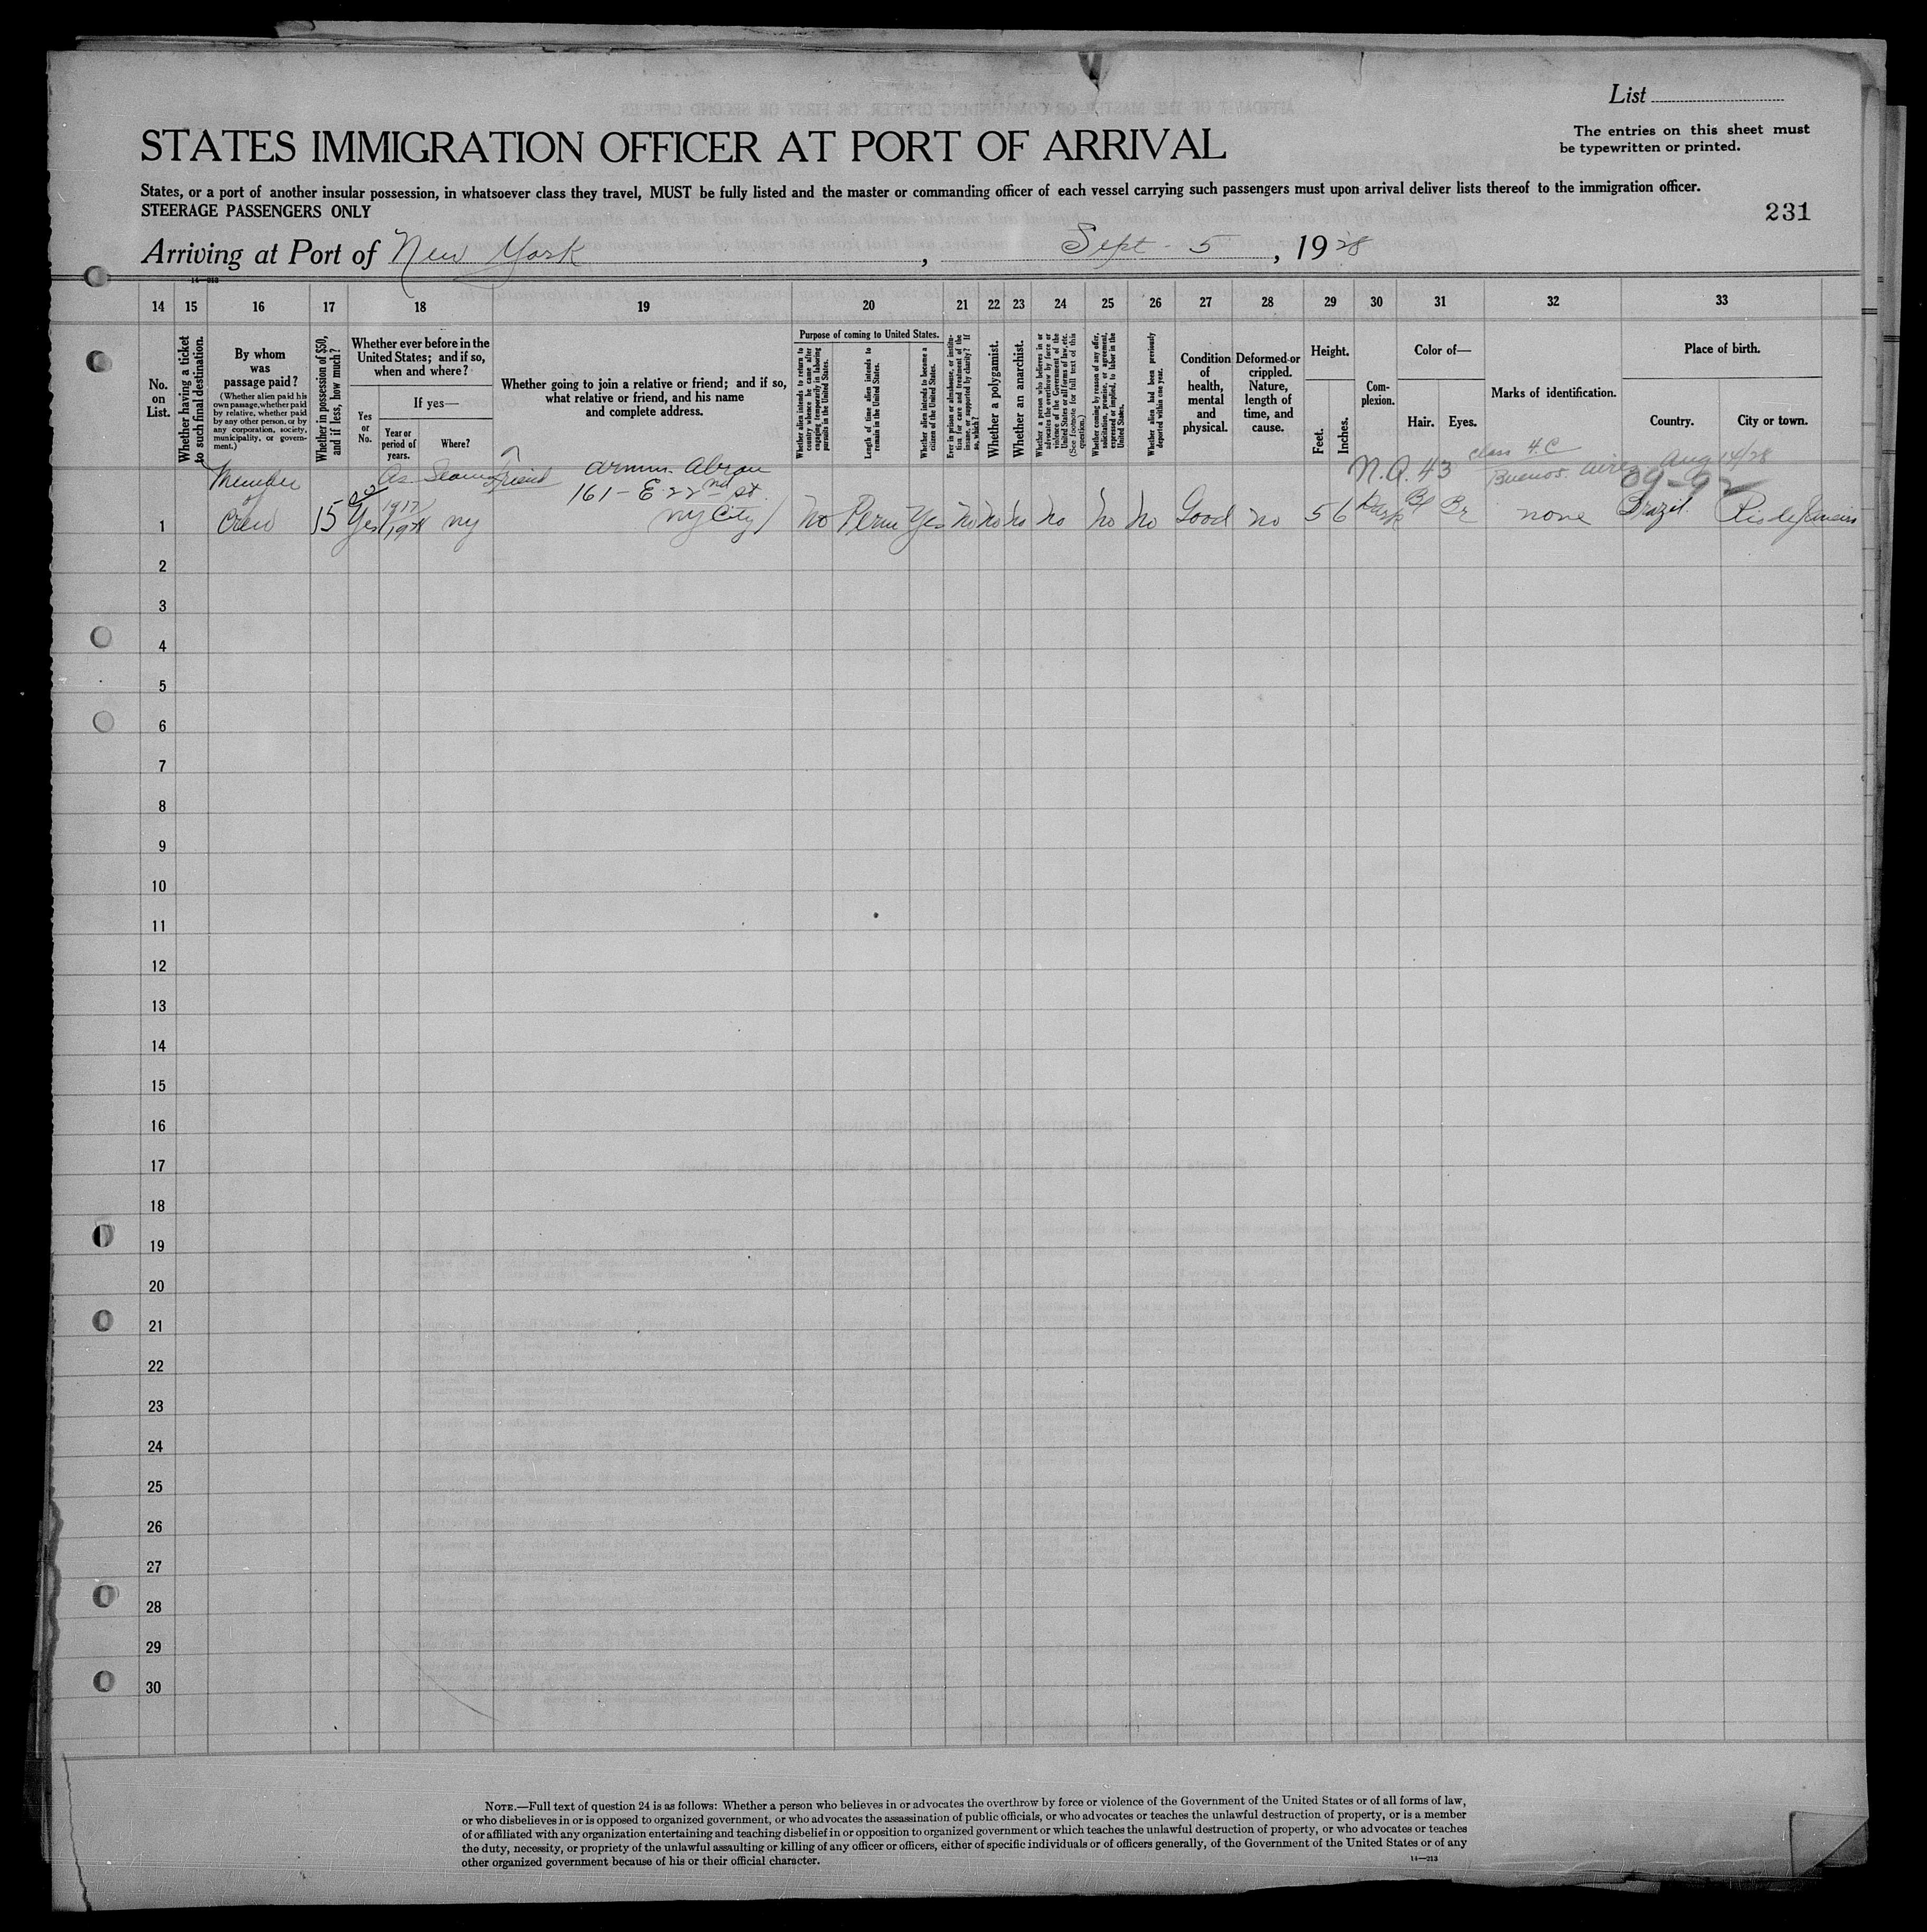 List
The entries on this sheet must
be typewritten or printed.
STATES IMMIGRATION OFFICER AT PORT OF ARRIVAL
States, or a port of another insular possession, in whatsoever class they travel, MUST be fully listed and the master or commanding officer of each vessel carrying such passengers must upon arrival deliver lists thereof to the immigration officer.
STEERAGE PASSENGERS ONLY
231
Arriving at Port of New York, Sept - 5, 1928
14 15 16 17 18 19 20 21 22 23 24 25 26 27 28 29 30 31 32 33
No.
on
List.
Whether having a ticket
to such final destination.
By whom
was
passage paid?
(Whether alien paid his
own passage, whether paid
by relative, whether paid
by any other person, or by
any corporation, society,
municipality, or govern-
ment.)
Whether in possession of $50,
and if less, how much?
Whether ever before in the
United States; and if so,
when and where?
Yes
or
No.
If yes—
Year or
period of
years.
Where?
Whether going to join a relative or friend; and if so,
what relative or friend, and his name
and complete address.
Purpose of coming to United States.
Whether alien intends to return to
country whence he came after
engaging temporarily in laboring
pursuits in the United States.
Length of time alien intends to
remain in the United States.
Whether alien intends to become a
citizen of the United States.
Ever in prison or almshouse, or institu-
tion for care and treatment of the
insane, or supported by charity? If
so, which?
Whether a polygamist.
Whether an anarchist.
Whether a person who believes in or
advocates the overthrow by force or
violence of the Government of the
United States or all forms of law, etc.
(See footnote for full text of this
question.)
Whether coming by reason of any offer,
solicitation, promise, or agreement,
expressed or implied, to labor in the
United States.
Whether alien had been previously
deported within one year.
Condition
of
health,
mental
and
physical.
Deformed or
crippled.
Nature,
length of
time, and
cause.
Height.
Feet.
Inches.
Com-
plexion.
Color of—
Hair.
Eyes.
Marks of identification.
Place of birth.
Country.
City or town.
class 4.C
N.Q. 43 Buenos Aires Aug 14/28
09-92
Member
of
Crew
As Seaman
Friend
161 - E 22nd St.
NY City
1 15 Yes 1917 NY No Perm Yes No No No No No No Good no 5 6 Dark Bl Br none Brazil Rio de Janeiro
2
3
4
5
6
7
8
9
10
11
12
13
14
15
16
17
18
19
20
21
22
23
24
25
26
27
28
29
30
NOTE.—Full text of question 24 is as follows: Whether a person who believes in or advocates the overthrow by force or violence of the Government of the United States or of all forms of law,
or who disbelieves in or is opposed to organized government, or who advocates the assassination of public officials, or who advocates or teaches the unlawful destruction of property, or is a member
of or affiliated with any organization entertaining and teaching disbelief in or opposition to organized government or which teaches the unlawful destruction of property, or who advocates or teaches
the duty, necessity, or propriety of the unlawful assaulting or killing of any officer or officers, either of specific individuals or of officers generally, of the Government of the United States or of any
other organized government because of his or their official character.
14—213